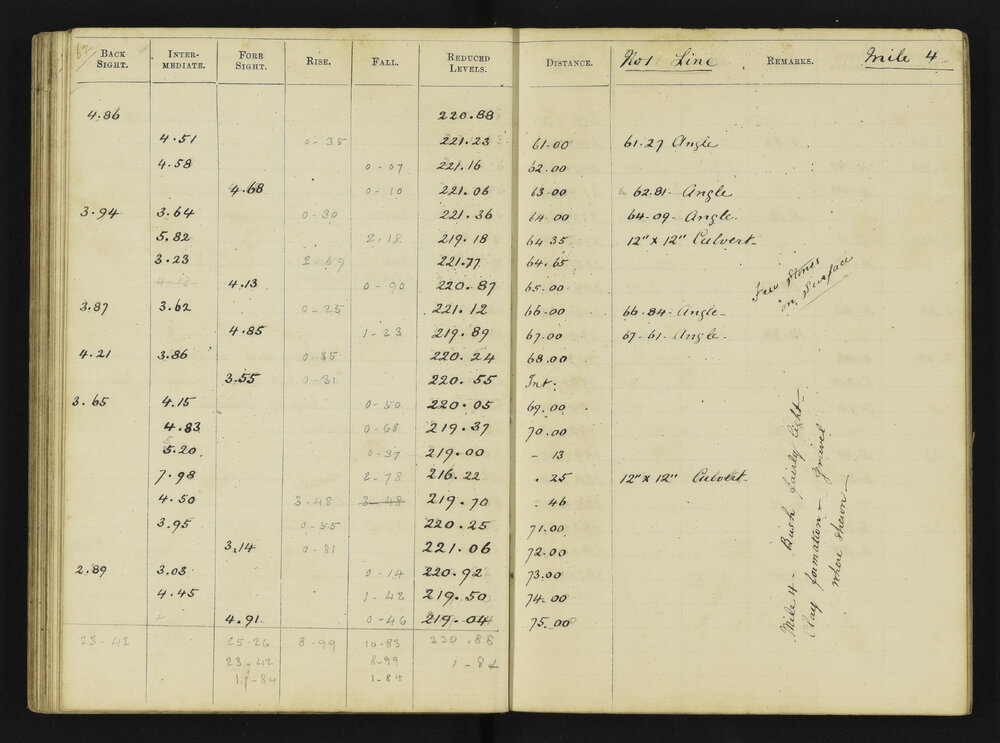 62 BACK SIGHT. INTER-MEDIATE. FORE SIGHT. RISE. FALL. REDUCED LEVELS. DISTANCE. No 1 Line REMARKS. Mile 4
4.86 220.88
4.51 0-35 221.23 61.00 61.27 Angle
4.58 0-07 221.16 62.00
4.68 0-10 221.06 63.00 62.81- Angle
3.94 3.64 0-30 221.36 64.00 64-09- Angle-
5.82 2-18 219.18 64.35 12" x 12" Culvert-
3.23 2-59 221.77 64.65
4.13 4.13 0-90 220.87 65.00
Few Stones
on Surface
3.87 3.62 0-25 221.12 66.00 66.84- Angle-
4.85 1-23 219.89 67.00 67-61- Angle-
4.21 3.86 0-35 220.24 68.00
3.55 0-31 220.55 Int:
3.65 4.15 0-50 220.05 69.00
4.83 0-68 219.37 70.00
5.20 0-37 219.00 - 13
7.98 2-78 216.22 . 25 12" x 12" Culvert-
4.50 3-48 3-48 219.70 - 46
3.95 0-55 220.25 71.00
3.14 0-81 221.06 72.00
2.89 3.03 0-14 220.92 73.00
4.45 1-42 219.50 74.00
4.91 0-46 219.04 75.00
23-42 25-26 8-99 10-83 220.88
23-42 8-99 1-84
1-84 1-84
Mile 4- Bush fairly light-
Clay formation- gravel
where shewn-